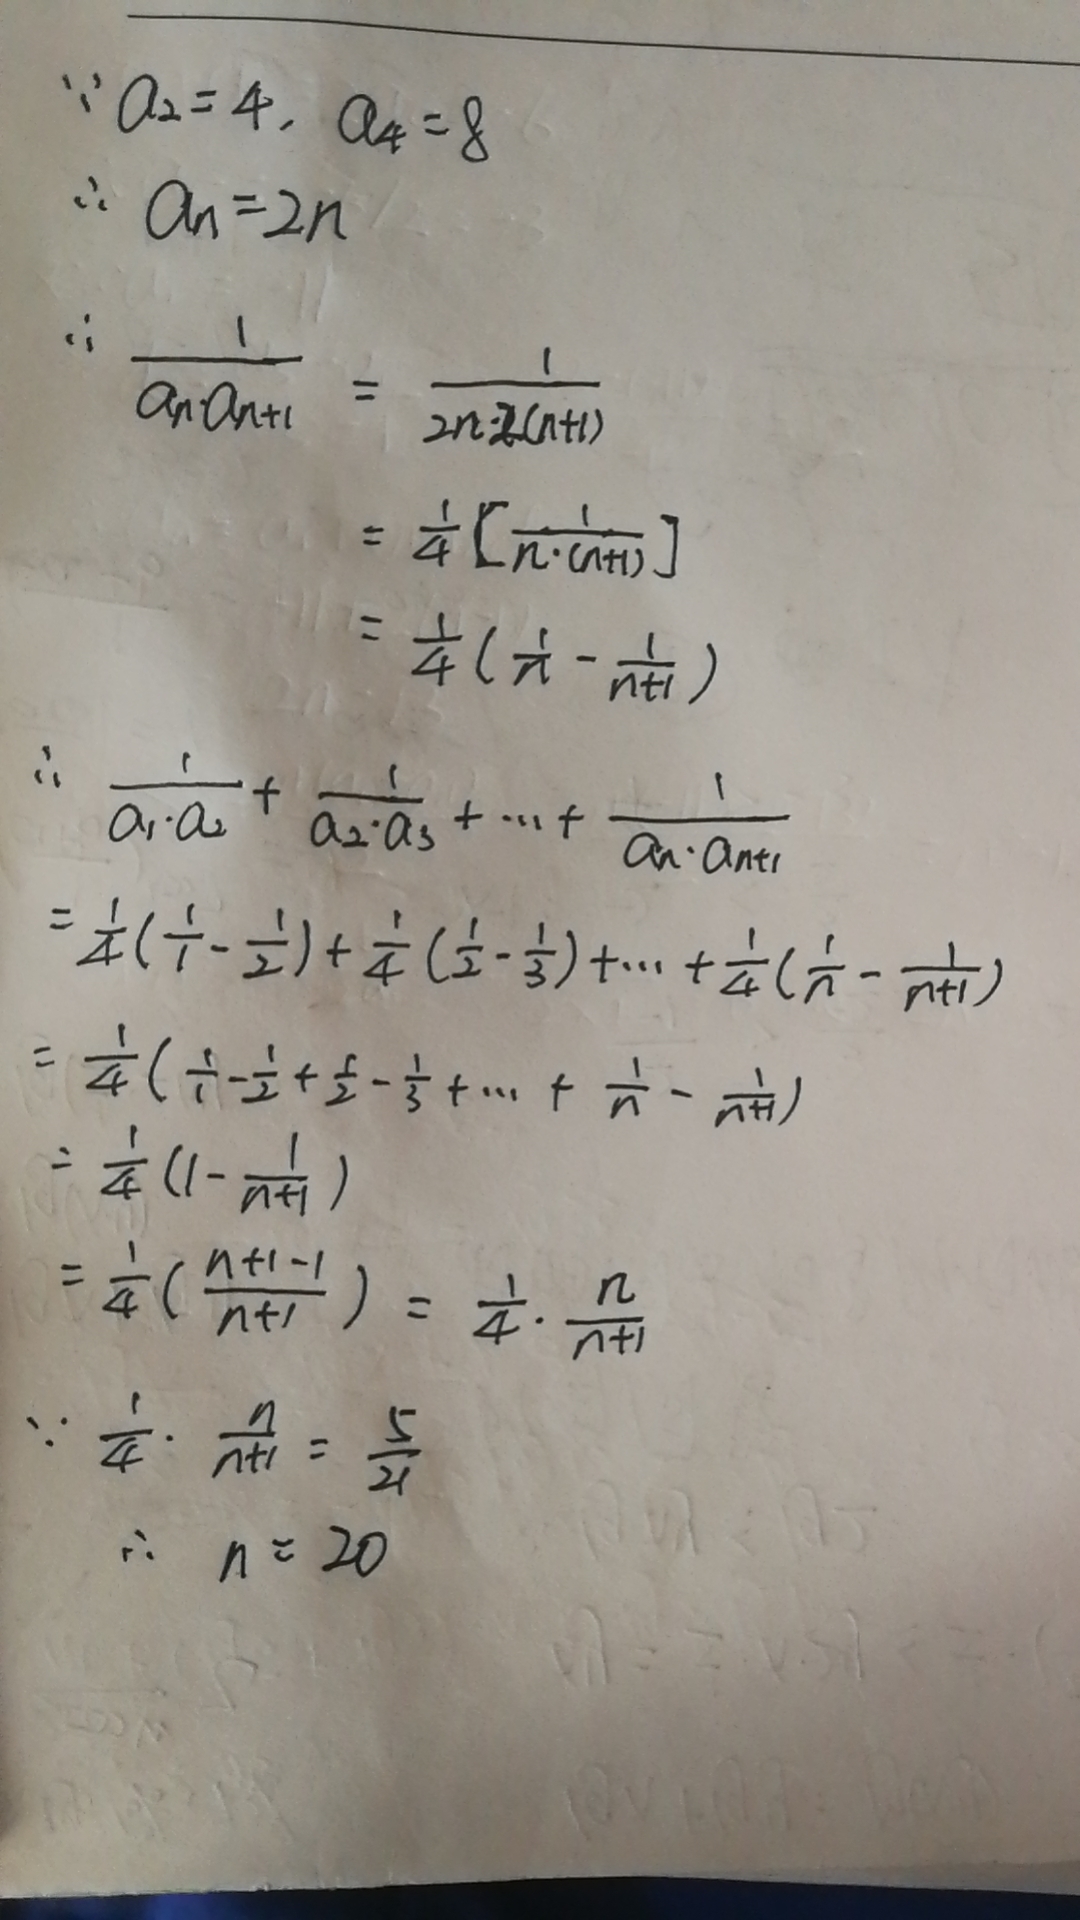 ∵ a₂=4, a₄=8
∴ aₙ=2n
∴ 1/(aₙ·aₙ₊₁) = 1/(2n·2(n+1))
= 1/4[1/(n·(n+1))]
= 1/4(1/n - 1/(n+1))
∴ 1/(a₁·a₂) + 1/(a₂·a₃) + ... + 1/(aₙ·aₙ₊₁)
= 1/4(1/1 - 1/2) + 1/4(1/2 - 1/3) + ... + 1/4(1/n - 1/(n+1))
= 1/4(1/1 - 1/2 + 1/2 - 1/3 + ... + 1/n - 1/(n+1))
= 1/4(1 - 1/(n+1))
= 1/4((n+1-1)/(n+1)) = 1/4 · n/(n+1)
∵ 1/4 · n/(n+1) = 5/21
∴ n = 20